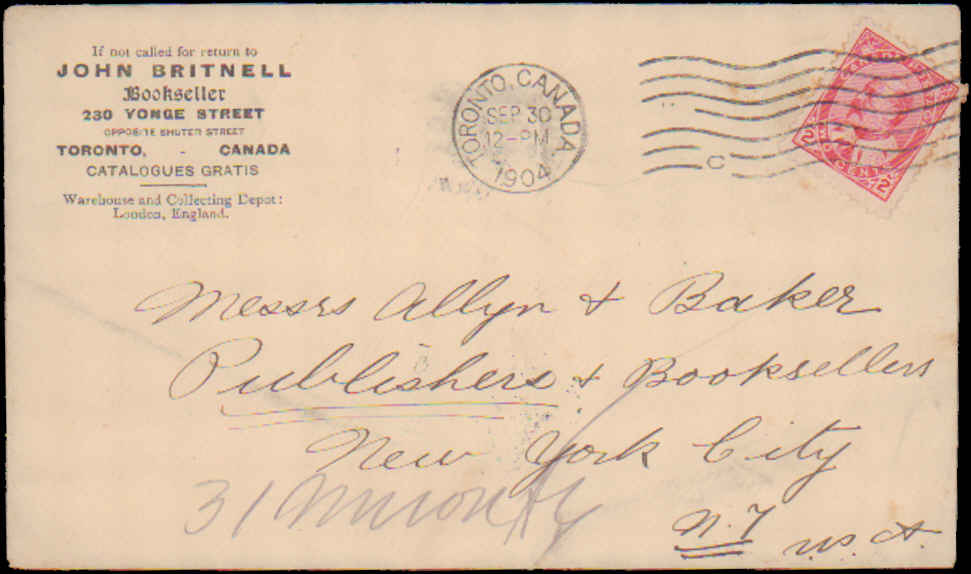 If not called for return to
JOHN BRITNELL
Bookseller
230 YONGE STREET
OPPOSITE SHUTER STREET
TORONTO, - CANADA
CATALOGUES GRATIS
Warehouse and Collecting Depot:
London, England.
TORONTO, CANADA.
SEP 30
12-PM
1904
C
2 CENTS 2
Messrs Allyn & Baker
Publishers & Booksellers
New York City
31
N.Y
U.S.A.